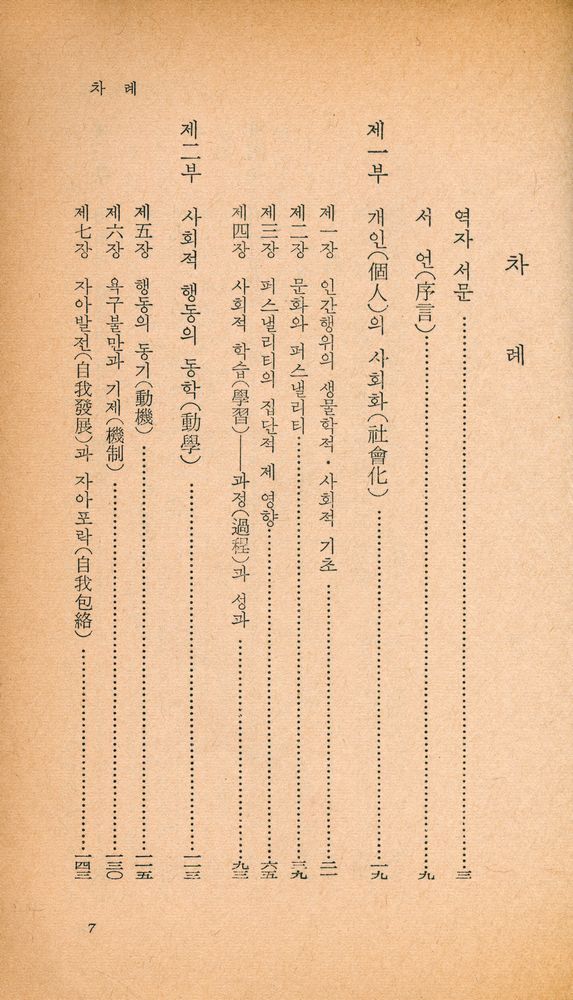 차 례
역자 서문 ……………… 三
서 언(序言) ……………… 九
제一부 개인(個人)의 사회화(社會化) ……………… 一九
제一장 인간행위의 생물학적·사회적 기초 ……………… 二一
제二장 문화와 퍼스낼리티 ……………… 三九
제三장 퍼스낼리티의 집단적 제 영향 ……………… 六五
제四장 사회적 학습(學習)──과정(過程)과 성과 ……………… 九三
제二부 사회적 행동의 동학(動學) ……………… 一一三
제五장 행동의 동기(動機) ……………… 一一五
제六장 욕구불만과 기제(機制) ……………… 一三〇
제七장 자아발전(自我發展)과 자아포락(自我包絡) ……………… 一四三
차 례
7